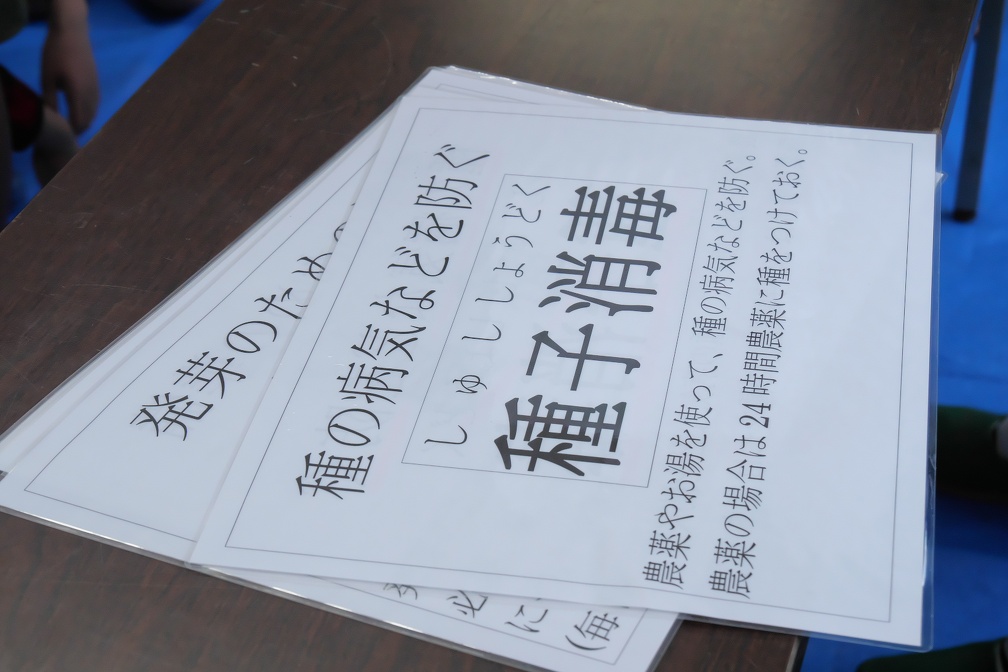 種の病気などを防ぐ
しゅししょうどく
種子消毒
農薬やお湯を使って、種の病気などを防ぐ。
農薬の場合は24時間農薬に種をつけておく。
発芽のため
必
に
(毎